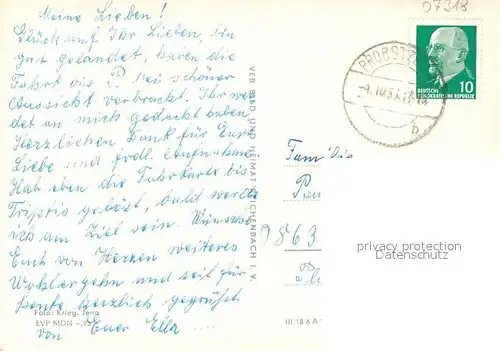 07318
Meine Lieben!
Glück auf Ihr Lieben, bin
gut gelandet, haben die
Fahrt bis P. bei schöner
Aussicht verbracht. Ihr wer
det an mich gedacht haben.
Herzlichen Dank für Eure
Liebe und frdl. Aufnahme.
Hab eben die Fahrkarte bis
Triptis gelöst, bald werde
ich am Ziel sein. Wünsche
Euch von Herzen weiteres
Wohlergehn und seit für
heute herzlich gegrüßt
von Eurer Ella ....
Foto: Krieg, Jena
EVP MDN
VEB BILD UND HEIMAT REICHENBACH I. V.
PROBSTZ
b
DEUTSCHE
DEMOKRATISCHE REPUBLIK
10
Fam.
9863
III 18 6 A
privacy protection
Datenschutz